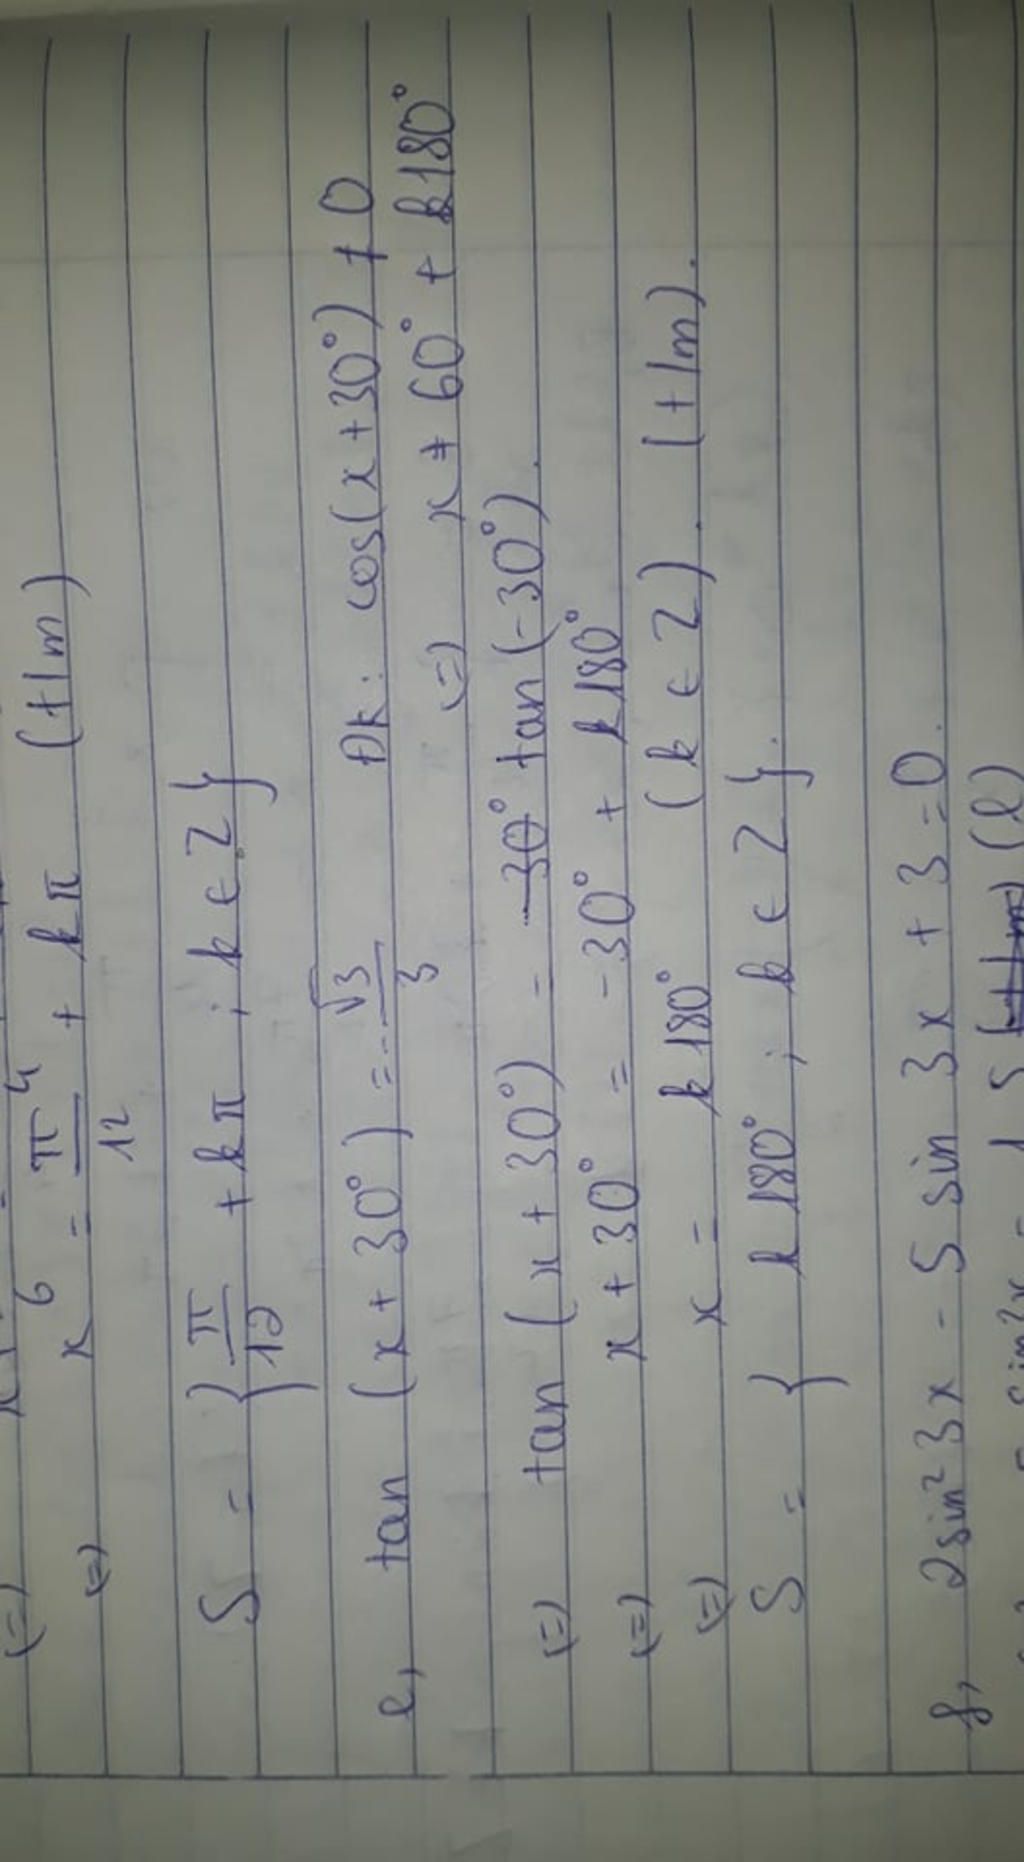 (=) x
(=) x = π/12 + kπ (t/m)
S = { π/12 + kπ ; k ∈ Z }
e, tan (x + 30°) = -√3/3 Đk: cos(x + 30°) ≠ 0
(=) x ≠ 60° + k180°
(=) tan (x + 30°) = tan (-30°).
(=) x + 30° = -30° + k180°
(=) x = k180° (k ∈ Z). (t/m).
S = { k180° ; k ∈ Z }.
f, 2sin²3x - 5 sin 3x + 3 = 0.
(l)